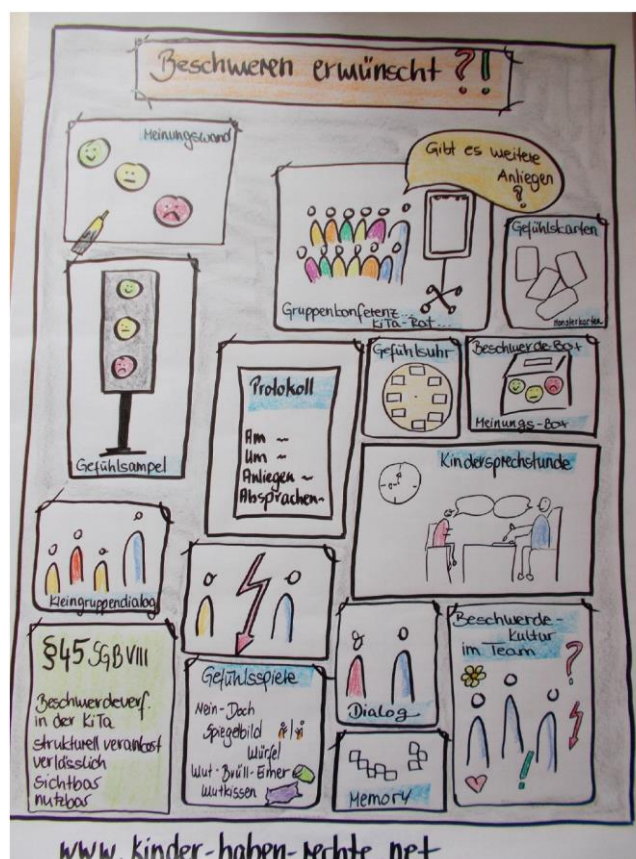 Beschweren erwünscht ?!
Meinungswand
Gibt es weitere
Anliegen
?
Gruppenkonferenz...
KiTa-Rat...
Gefühlskarten
Monsterkarten
Gefühlsampel
Protokoll
Am ~
Um ~
Anliegen ~
Absprachen~
Gefühlsuhr
Beschwerde-Box
Meinungs-Box
Kindersprechstunde
Kleingruppendialog
§45 SGB VIII
Beschwerdeverf.
in der KiTa
strukturell verankert
verlässlich
Sichtbar
nutzbar
Gefühlsspiele
Nein-Doch
Spiegelbild
Würfel
Wut-Brüll-Eimer
Wutkissen
Dialog
Memory
Beschwerde-
Kultur
im Team
?
!
www.kinder-haben-rechte.net